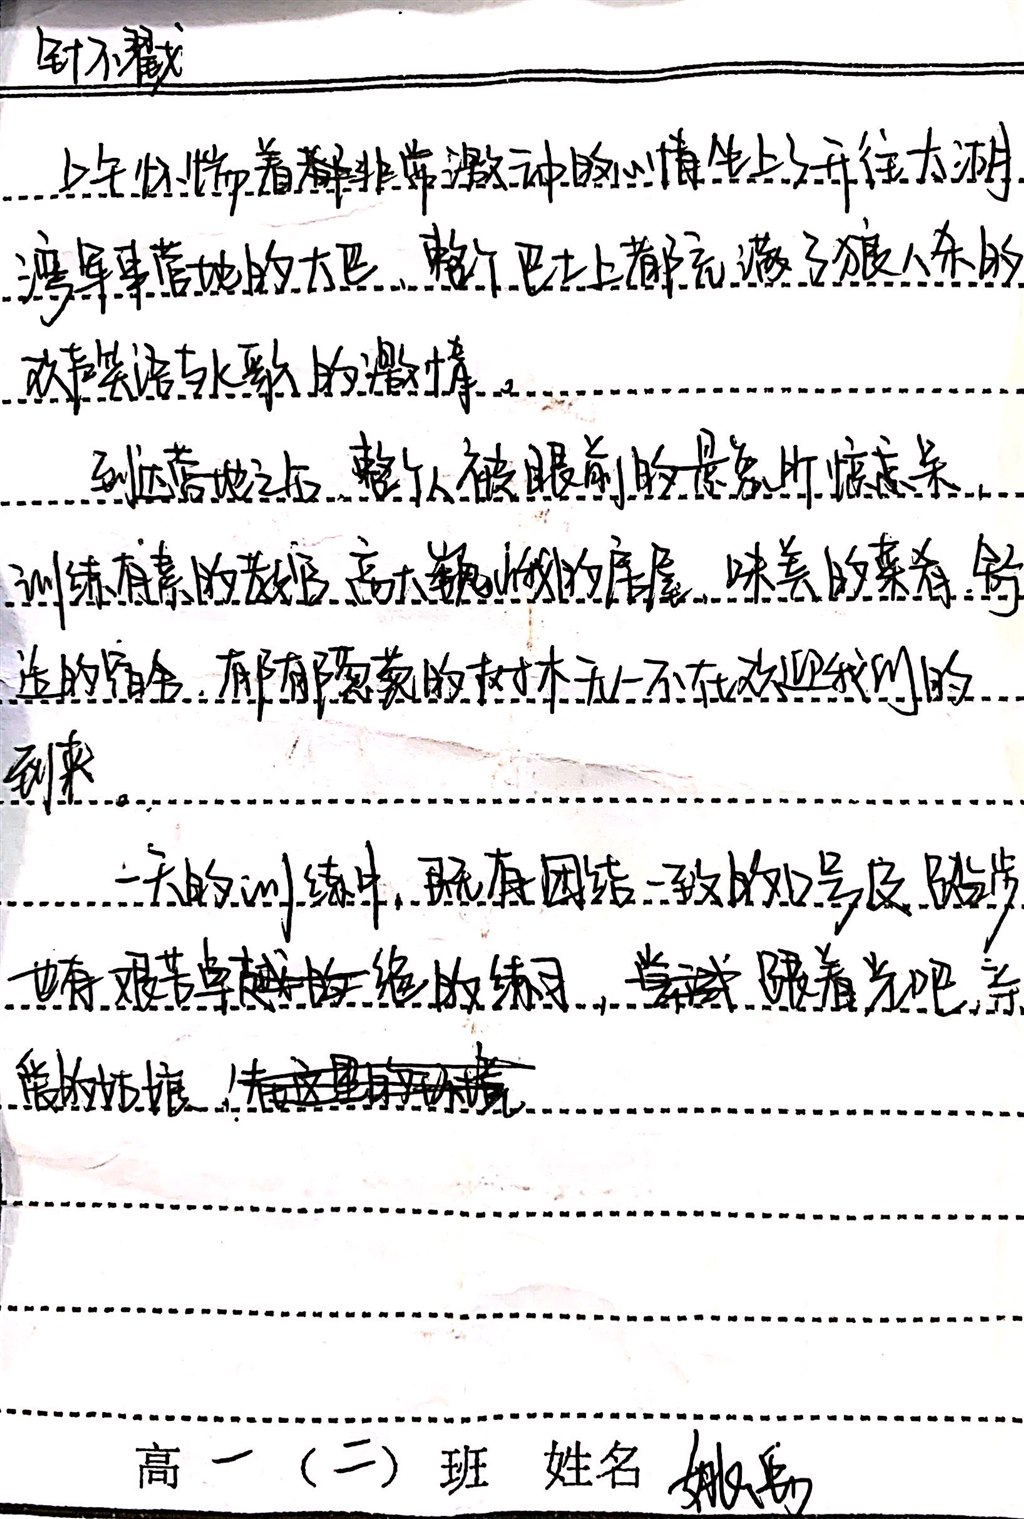 针不戳
上午怀惴着非常激动的心情坐上了开往太湖
湾军事营地的大巴、整个巴士上都充满了狼人杀的
欢声笑语与K歌的激情。
到达营地之后、整个人被眼前的景象所惊呆,
训练有素的教官 高大巍峨的房屋、味美的菜肴、舒
适的宿舍、郁郁葱葱的树木无一不在欢迎我们的
到来。
一天的训练中,既有团结一致的口号及踏步
也有艰苦卓绝的练习, 跟着光吧,亲
爱的姑娘!
高一(二)班 姓名